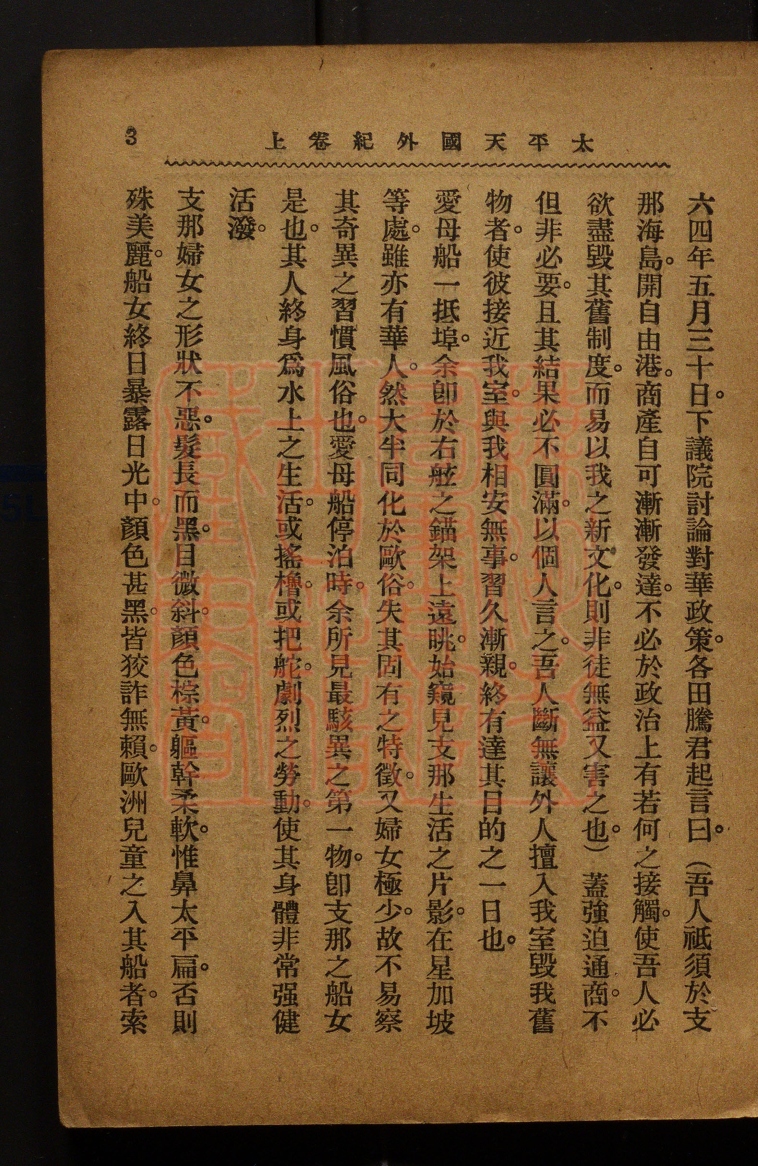 太平天國外紀卷上
3
六四年五月三十日。下議院討論對華政策。各田騰君起言曰。(吾人祇須於支
那海島。開自由港。商產自可漸漸發達。不必於政治上有若何之接觸。使吾人必
欲盡毀其舊制度。而易以我之新文化。則非徒無益又害之也。) 蓋強迫通商。不
但非必要。且其結果必不圓滿。以個人言之。吾人斷無讓外人擅入我室毀我舊
物者。使彼接近我室。與我相安無事。習久漸親。終有達其目的之一日也。
愛母船一抵埠。余卽於右舷之錨架上遠眺。始窺見支那生活之片影。在星加坡
等處。雖亦有華人。然大半同化於歐俗。失其固有之特徵。又婦女極少。故不易察
其奇異之習慣風俗也。愛母船停泊時。余所見最駭異之第一物。卽支那之船女
是也。其人終身爲水上之生活。或搖櫓。或把舵。劇烈之勞動。使其身體非常强健
活潑。
支那婦女之形狀不惡。髮長而黑。目微斜。顏色棕黃。軀幹柔軟。惟鼻太平扁。否則
殊美麗。船女終日暴露日光中。顏色甚黑。皆狡詐無賴。歐洲兒童之入其船者。索